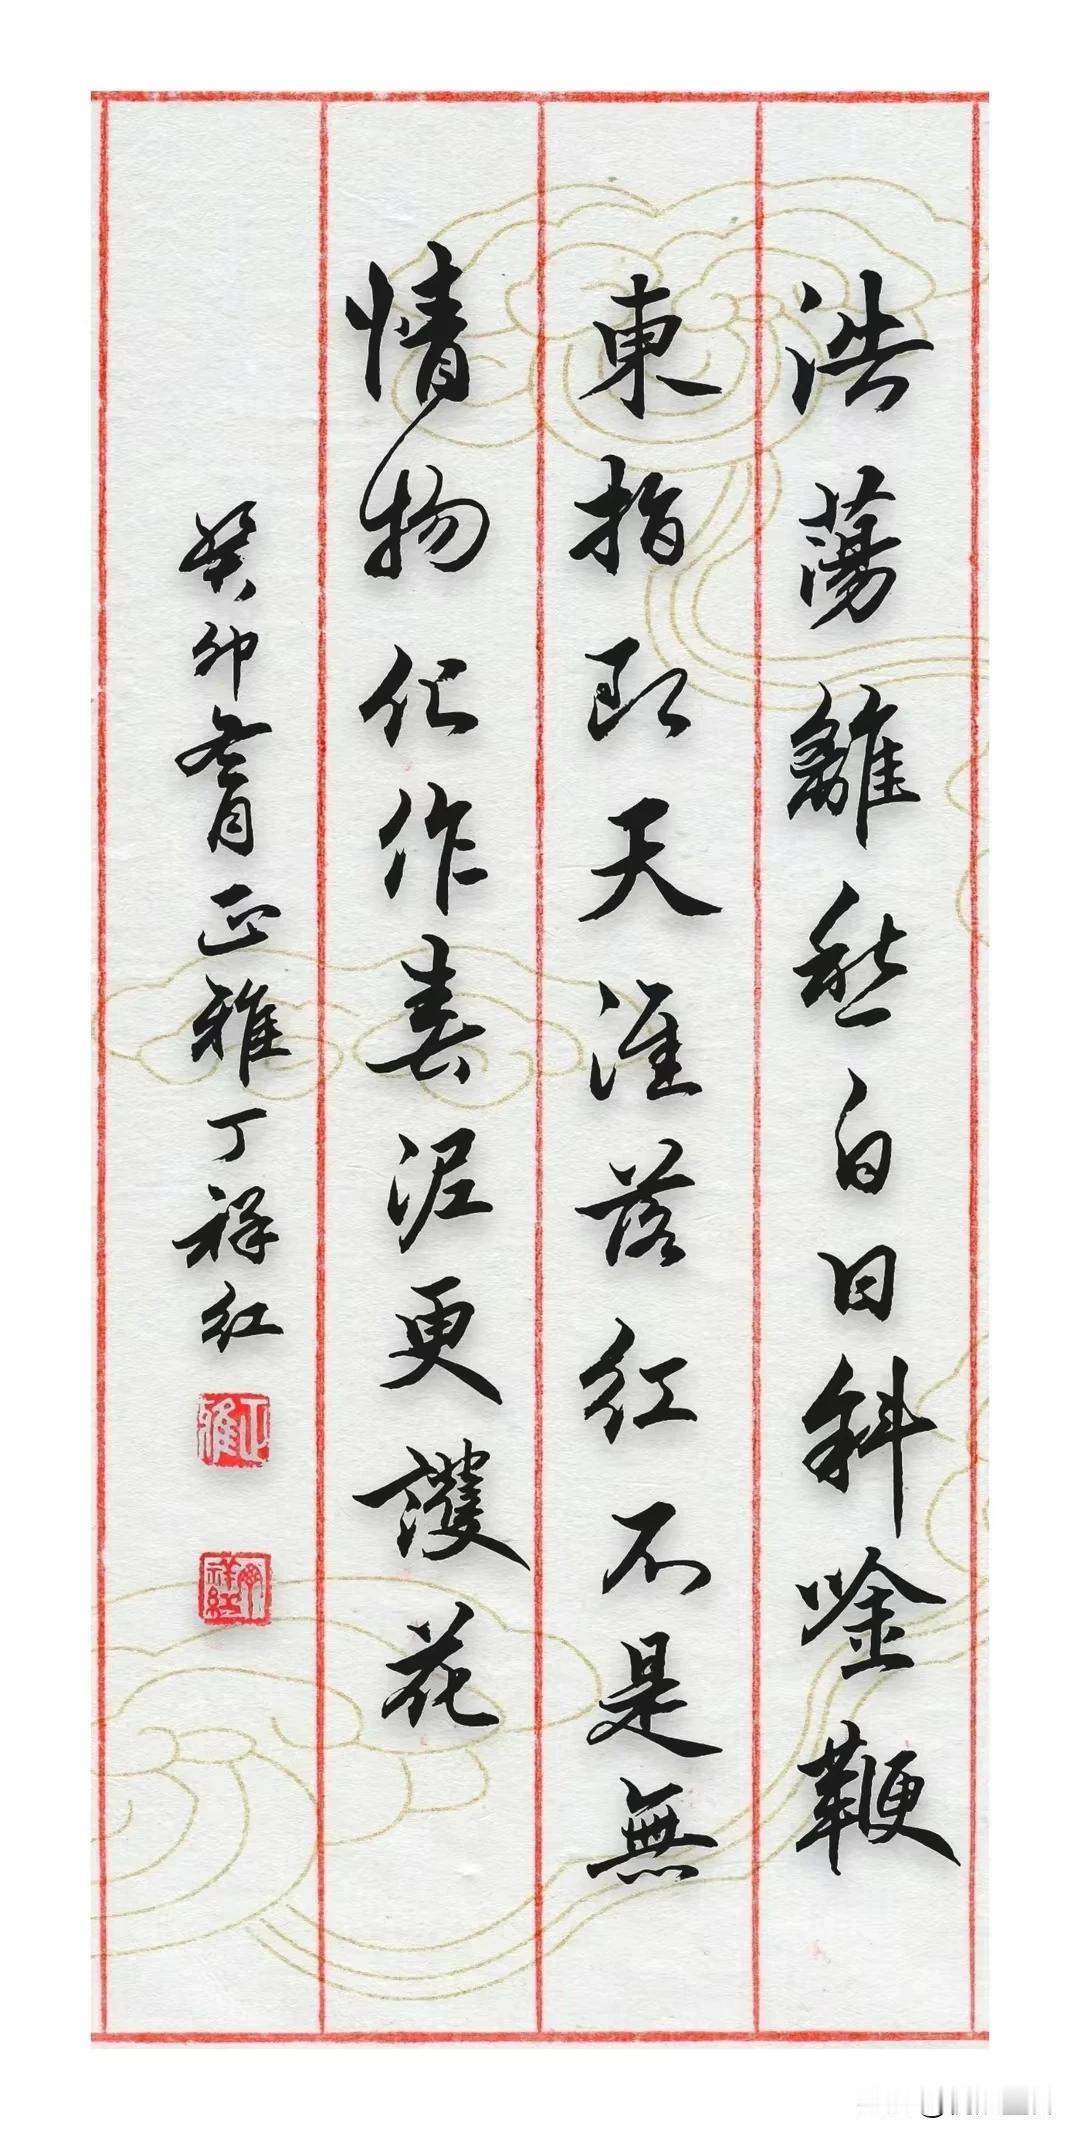 浩蕩離愁白日斜唫鞭
東指即天涯落红不是無
情物化作春泥更護花
癸卯冬月正雅丁祥红
正雅
祥红